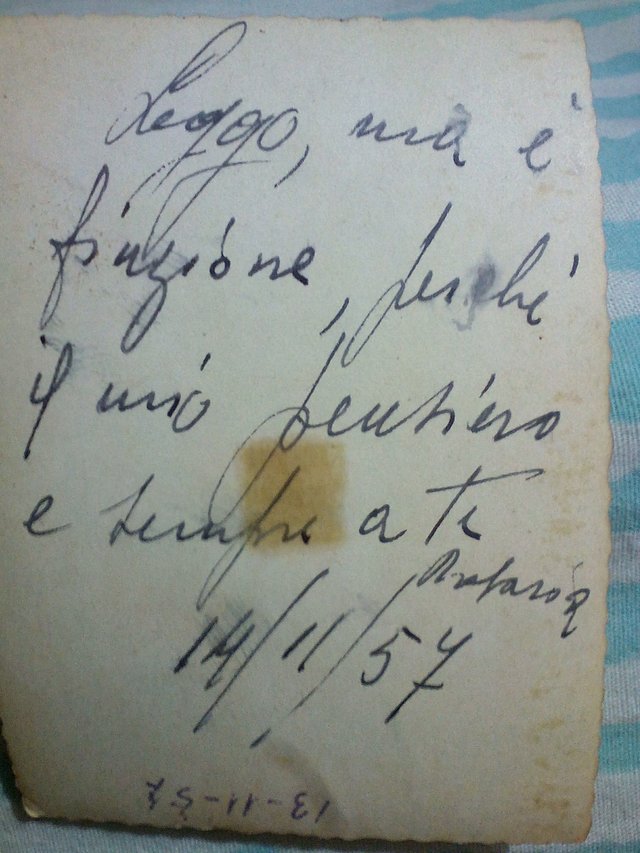 Leggo, ma è
finzione, perché
il mio pensiero
e sempre a te
14/11/57
13-11-57